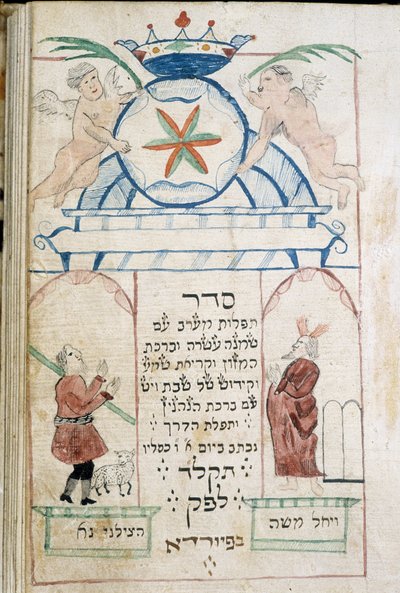 סדר
תפלות מערב עם
שמנה עשרה וברכת
המזון וקריאת שמע
וקידוש של שבת ויט
עם ברכת הנהנין
ותפלת הדרך
נכתב ביום א ו כסליו
תקלד
לפק
בפיורדא
ויחל משה
הצילני נא